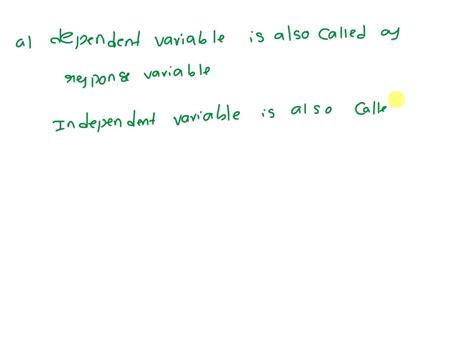 a) dependent variable is also called as
response variable
Independent variable is also calle